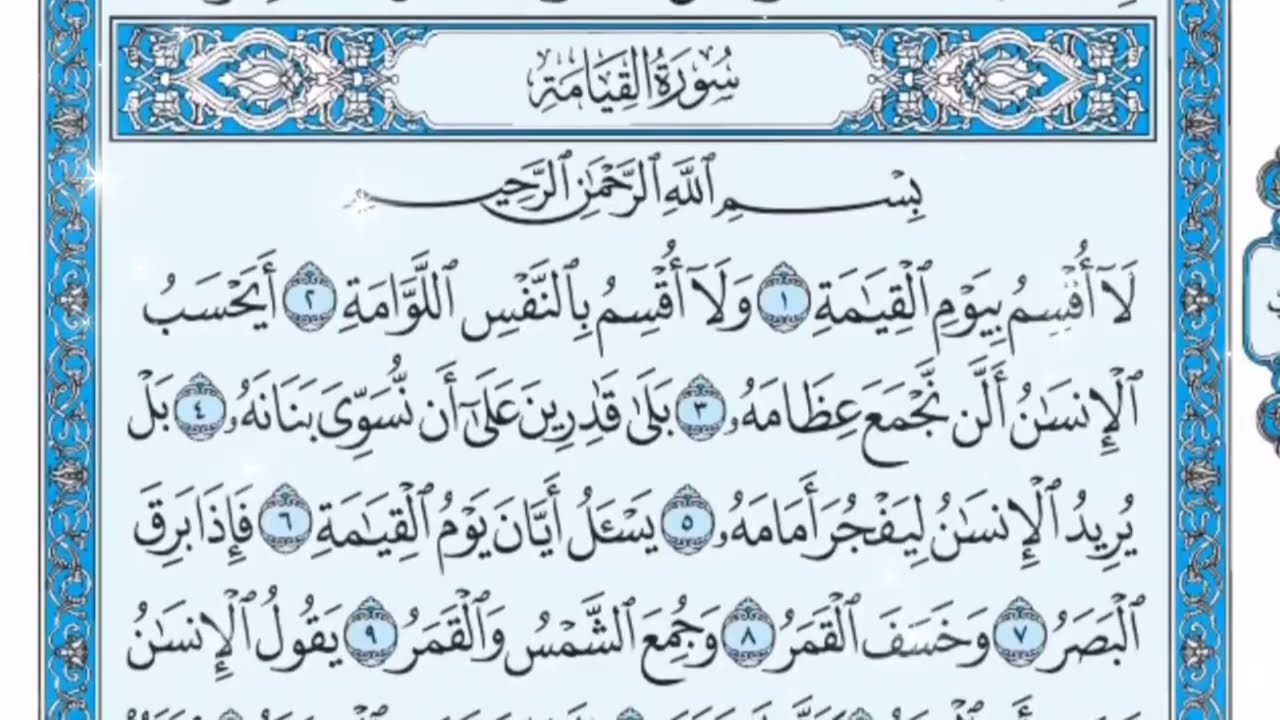 سُورَةُ الْقِيَامَةِ
بِسْمِ ٱللَّهِ ٱلرَّحْمَٰنِ ٱلرَّحِيمِ
لَآ أُقْسِمُ بِيَوْمِ ٱلْقِيَٰمَةِ ١ وَلَآ أُقْسِمُ بِٱلنَّفْسِ ٱللَّوَّامَةِ ٢ أَيَحْسَبُ
ٱلْإِنسَٰنُ أَلَّن نَّجْمَعَ عِظَامَهُۥ ٣ بَلَىٰ قَٰدِرِينَ عَلَىٰٓ أَن نُّسَوِّىَ بَنَانَهُۥ ٤ بَلْ
يُرِيدُ ٱلْإِنسَٰنُ لِيَفْجُرَ أَمَامَهُۥ ٥ يَسْـَٔلُ أَيَّانَ يَوْمُ ٱلْقِيَٰمَةِ ٦ فَإِذَا بَرِقَ
ٱلْبَصَرُ ٧ وَخَسَفَ ٱلْقَمَرُ ٨ وَجُمِعَ ٱلشَّمْسُ وَٱلْقَمَرُ ٩ يَقُولُ ٱلْإِنسَٰنُ